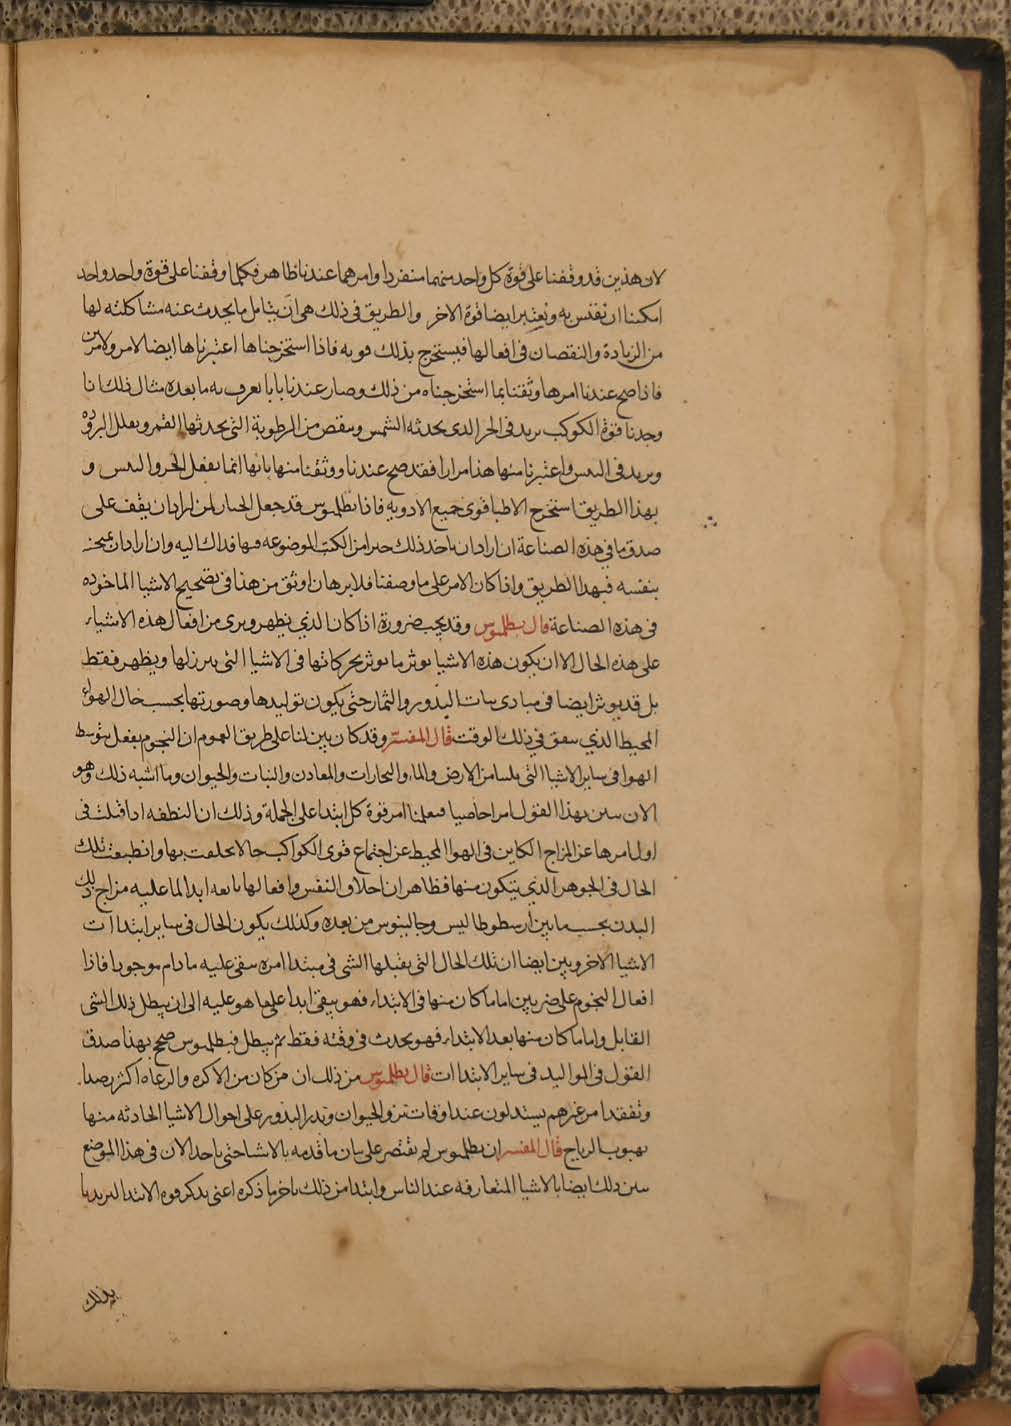 لان هذين قد وقفنا على قوة كل واحد منهما منفردا وامرهما عندنا ظاهر فكلما وقفنا على قوة واحد واحد
امكننا ان نقتس به ونعتبر ايضا قوة الاخر والطريق في ذلك هي ان يتامل ما يحدث عنه مشاكلته لها
من الزيادة والنقصان في افعالها فيستخرج بذلك قوته فاذا استخرجناها اعتبرناها ايضا لامر ولامرين
فاذا صح عندنا امرها وثقنا بما استخرجناه من ذلك وصار عندنا بابا نعرف به ما بعده مثال ذلك انا
وجدنا قوة الكوكب يزيد في الحر الذي يحدثه الشمس وينقص من الرطوبة التي يحدثها القمر ويقلل البرودة
ويزيد في اليبس واعتبرنا منها هذا مرارا فقد صح عندنا ووثقنا منها بانها انما يفعل الحر واليبس و
بهذا الطريق استخرج الاطبا قوى جميع الادوية فاذا بطلميوس قد جعل الخيار لمن اراد ان يقف على
صدق ما في هذه الصناعة ان اراد ان ياخذ ذلك خبرا من الكتب الموضوعه فيها فذاك اليه وان اراد ان يمتحنه
بنفسه فبهذا الطريق واذا كان الامر على ما وصفنا فلا برهان اوثق من هذا في تصحيح الاشيا الماخوذه
في هذه الصناعة قال بطلميوس وقد يجب ضرورة اذا كان الذي يظهر ويرى من افعال هذه الاشياء
على هذه الحال الا ان يكون هذه الاشيا يوثر ما يوثر بحركاتها في الاشيا التي ويظهر فقط
بل قد يوثر ايضا في مبادى نبات البذور والثمار حتى يكون توليدها وصورتها بحسب حال الهواء
المحيط الذي يتفق في ذلك الوقت قال المفسر وقد كان بين لنا على طريق العموم ان النجوم يفعل بتوسط
الهوا في ساير الاشيا التي من الارض والماء والبخارات والمعادن والنبات والحيوان وما اشبه ذلك وهو
الان يبين بهذا القول امرا خاصيا فيعلمنا امر قوة كل ابتدا على الجملة وذلك ان النطفه اذا قبلت في
اول امرها عن المزاج الكاين في الهوا المحيط عن اجتماع قوى الكواكب حالا تخلقت بها وانطبعت تلك
الحال في الجوهر الذي يتكون منها فظاهر ان اخلاق النفس وافعالها تابعه ابدا لما عليه مزاج ذلك
البدن بحسب ما بين ارسطوطاليس وجالينوس من بعده وكذلك يكون الحال في ساير ابتداات
الاشيا الاخر وبين ايضا ان تلك الحال التي يقبلها الشي في مبتدا امره يبقى عليه ما دام موجودا فاذا
افعال النجوم على ضربين اما ما كان منها في الابتداء فهو يبقى ابدا على ما هو عليه الى ان يبطل ذلك الشي
القابل واما ما كان منها بعد الابتداء فهو يحدث في وقته فقط ثم يبطل فبطلميوس صحح بهذا صدق
القول في المواليد في ساير الابتداات قال بطلميوس من ذلك ان من كان من الاكره والرعاه اكثر رصدا
وتفقدا من غيرهم يستدلون عند اوقات نزو الحيوان وبذر البذور على احوال الاشيا الحادثه منها
بهبوب الرياح قال المفسر ان بطلميوس لم يقتصر على بيان ما قدمه بالاشيا حتى ياخذ الان في هذا الموضع
يبين ذلك ايضا بالاشيا المتعارفه عند الناس وابتدا من ذلك باخر ما ذكره اعني بذكر قوه الابتدا
بذلك